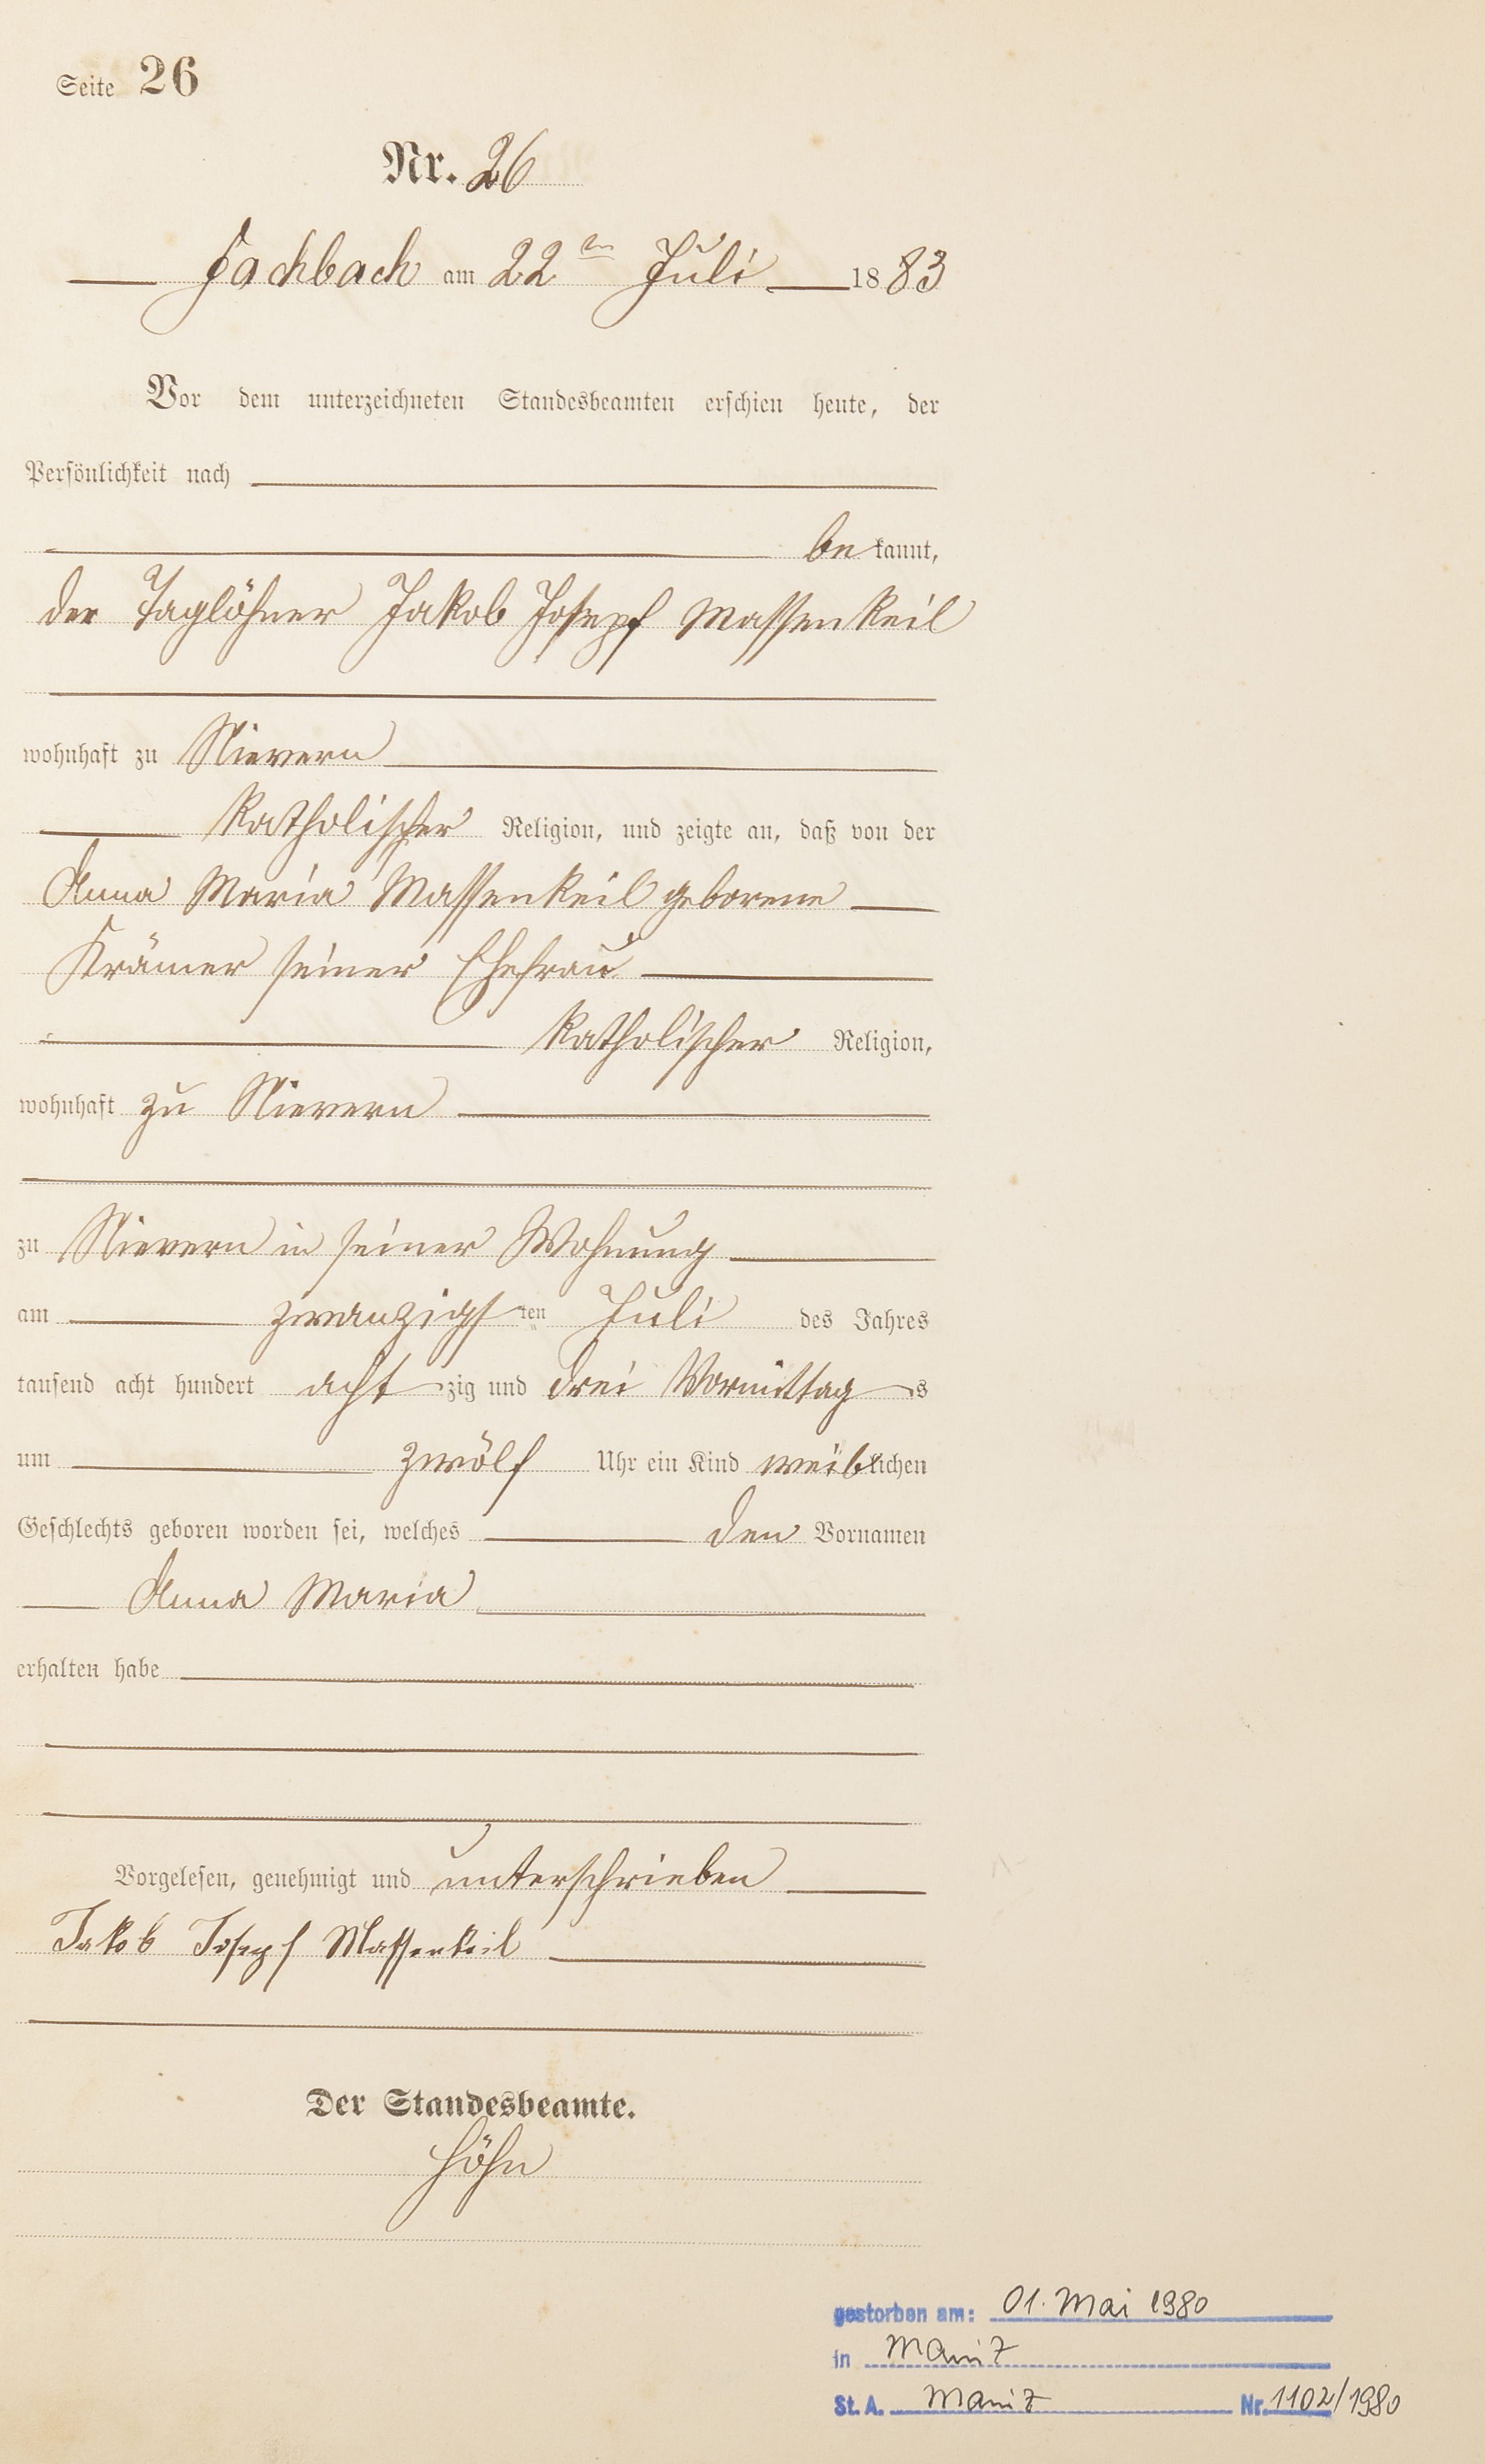 Seite 26
Nr. 26
Fachbach am 22ten Juli 1883
Vor dem unterzeichneten Standesbeamten erschien heute, der
Persönlichkeit nach
bekannt,
der Taglöhner Jakob Josepf Massenkeil
wohnhaft zu Nievern
Katholischer Religion, und zeigte an, daß von der
Anna Maria Massenkeil geborene
Krämer seiner Ehefrau
Katholischer Religion,
wohnhaft zu Nievern
zu Nievern in seiner Wohnung
am zwanzigsten Juli des Jahres
tausend acht hundert achtzig und drei Vormittags
um zwölf Uhr ein Kind weiblichen
Geschlechts geboren worden sei, welches den Vornamen
Anna Maria
erhalten habe
Vorgelesen, genehmigt und unterschrieben
Jakob Josepf Massenkeil
Der Standesbeamte.
Höhn
gestorben am: 01. Mai 1980
in Mainz
St. A. Mainz Nr. 1102/1980